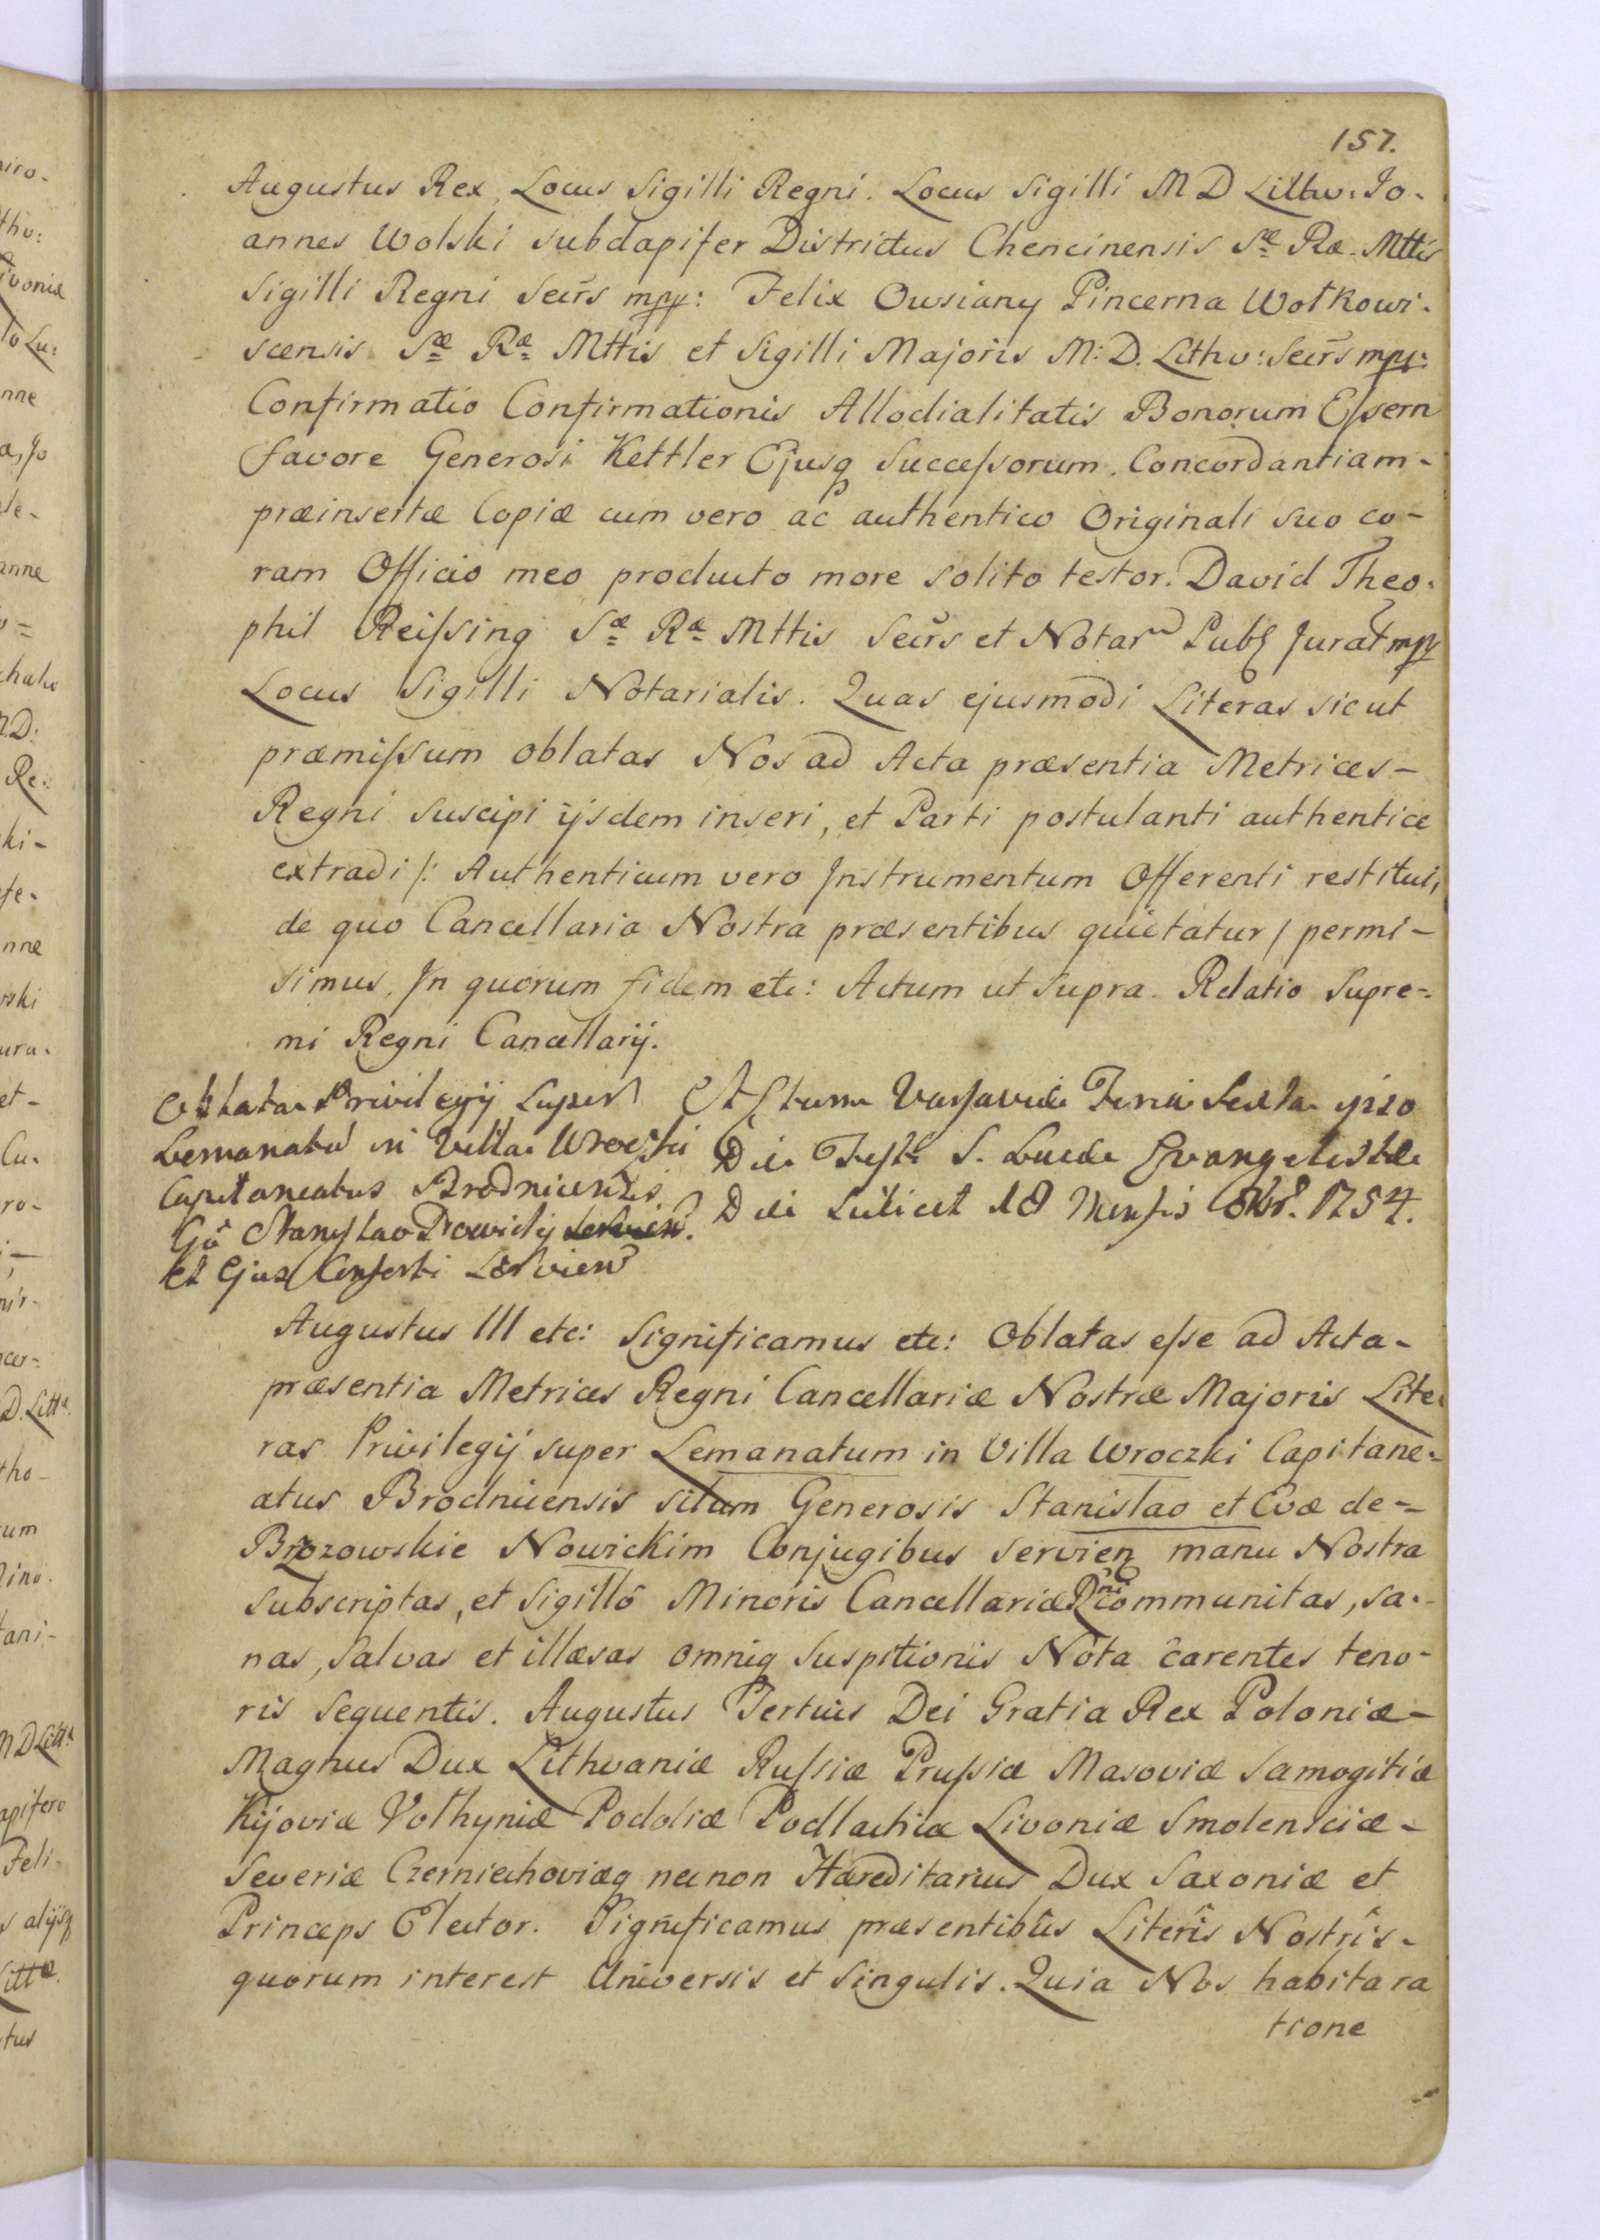 157.
Augustus Rex, Locus Sigilli Regni. Locus Sigilli M D Lithv: Jo-
annes Wolski Subdapifer Districtus Chencinensis Sæ Ræ. Mttis
Sigilli Regni Secrs mpp: Felix Owsiany Pincerna Wołkowi-
scensis Sæ Ræ Mttis et Sigilli Majoris M: D. Lithv: Secrs mpp:
Confirmatio Confirmationis Allodialitatis Bonorum Essern
favore Generosi Kettler Ejusq Successorum. Concordantiam-
præinsertæ Copiæ cum vero ac authentico Originali suo co-
ram Officio meo producto more solito testor. David Theo-
phil Reissing Sæ Ræ Mttis Secrs et Notar Publ Jurat mpp
Locus Sigilli Notarialis. Quas ejusmodi Literas sicut
præmissum oblatas Nos ad Acta præsentia Metrices-
Regni suscipi ijsdem inseri, et Parti postulanti authentice
extradi /: Authenticum vero Instrumentum Offerenti restitui,
de quo Cancellaria Nostra præsentibus quietatur / permi-
simus. In quorum fidem etc: Actum ut Supra. Relatio Supre-
mi Regni Cancellarij.
Oblata Privilegij super
Lemanatu in Villa Wroczki
Capitaneatus Brodnicensis
Go Stanislao Nowicky servien.
et Ejus Consorti servien
Actum Varsaviæ Feria Sexta ipso
Die Festi S. Lucæ Evangelistæ
Die scilicet 18 Mensis Obris. 1754.
Augustus III etc: Significamus etc: Oblatas esse ad Acta-
præsentia Metrices Regni Cancellariæ Nostræ Majoris Lite-
ras Privilegij super Lemanatum in Villa Wroczki Capitane-
atus Brodnicensis situm Generosis Stanislao et Evæ de-
Brzozowskie Nowickim Conjugibus servien manu Nostra
subscriptas, et Sigilló Minoris Cancellariæ Rni communitas, sa-
nas, salvas et illæsas omniq Suspitionis Nota carentes teno-
ris sequentis. Augustus Tertius Dei Gratia Rex Poloniæ-
Magnus Dux Lithvaniæ Russiæ Prussiæ Masoviæ Samogitiæ
Kijoviæ Volhyniæ Podoliæ Podlachiæ Livoniæ Smolensciæ-
Severiæ Czerniechoviæq necnon Hæreditarius Dux Saxoniæ et
Princeps Elector. Significamus præsentibûs Literîs Nostrîs-
quorum interest Universis et singulis. Quia Nos habita ra
tione